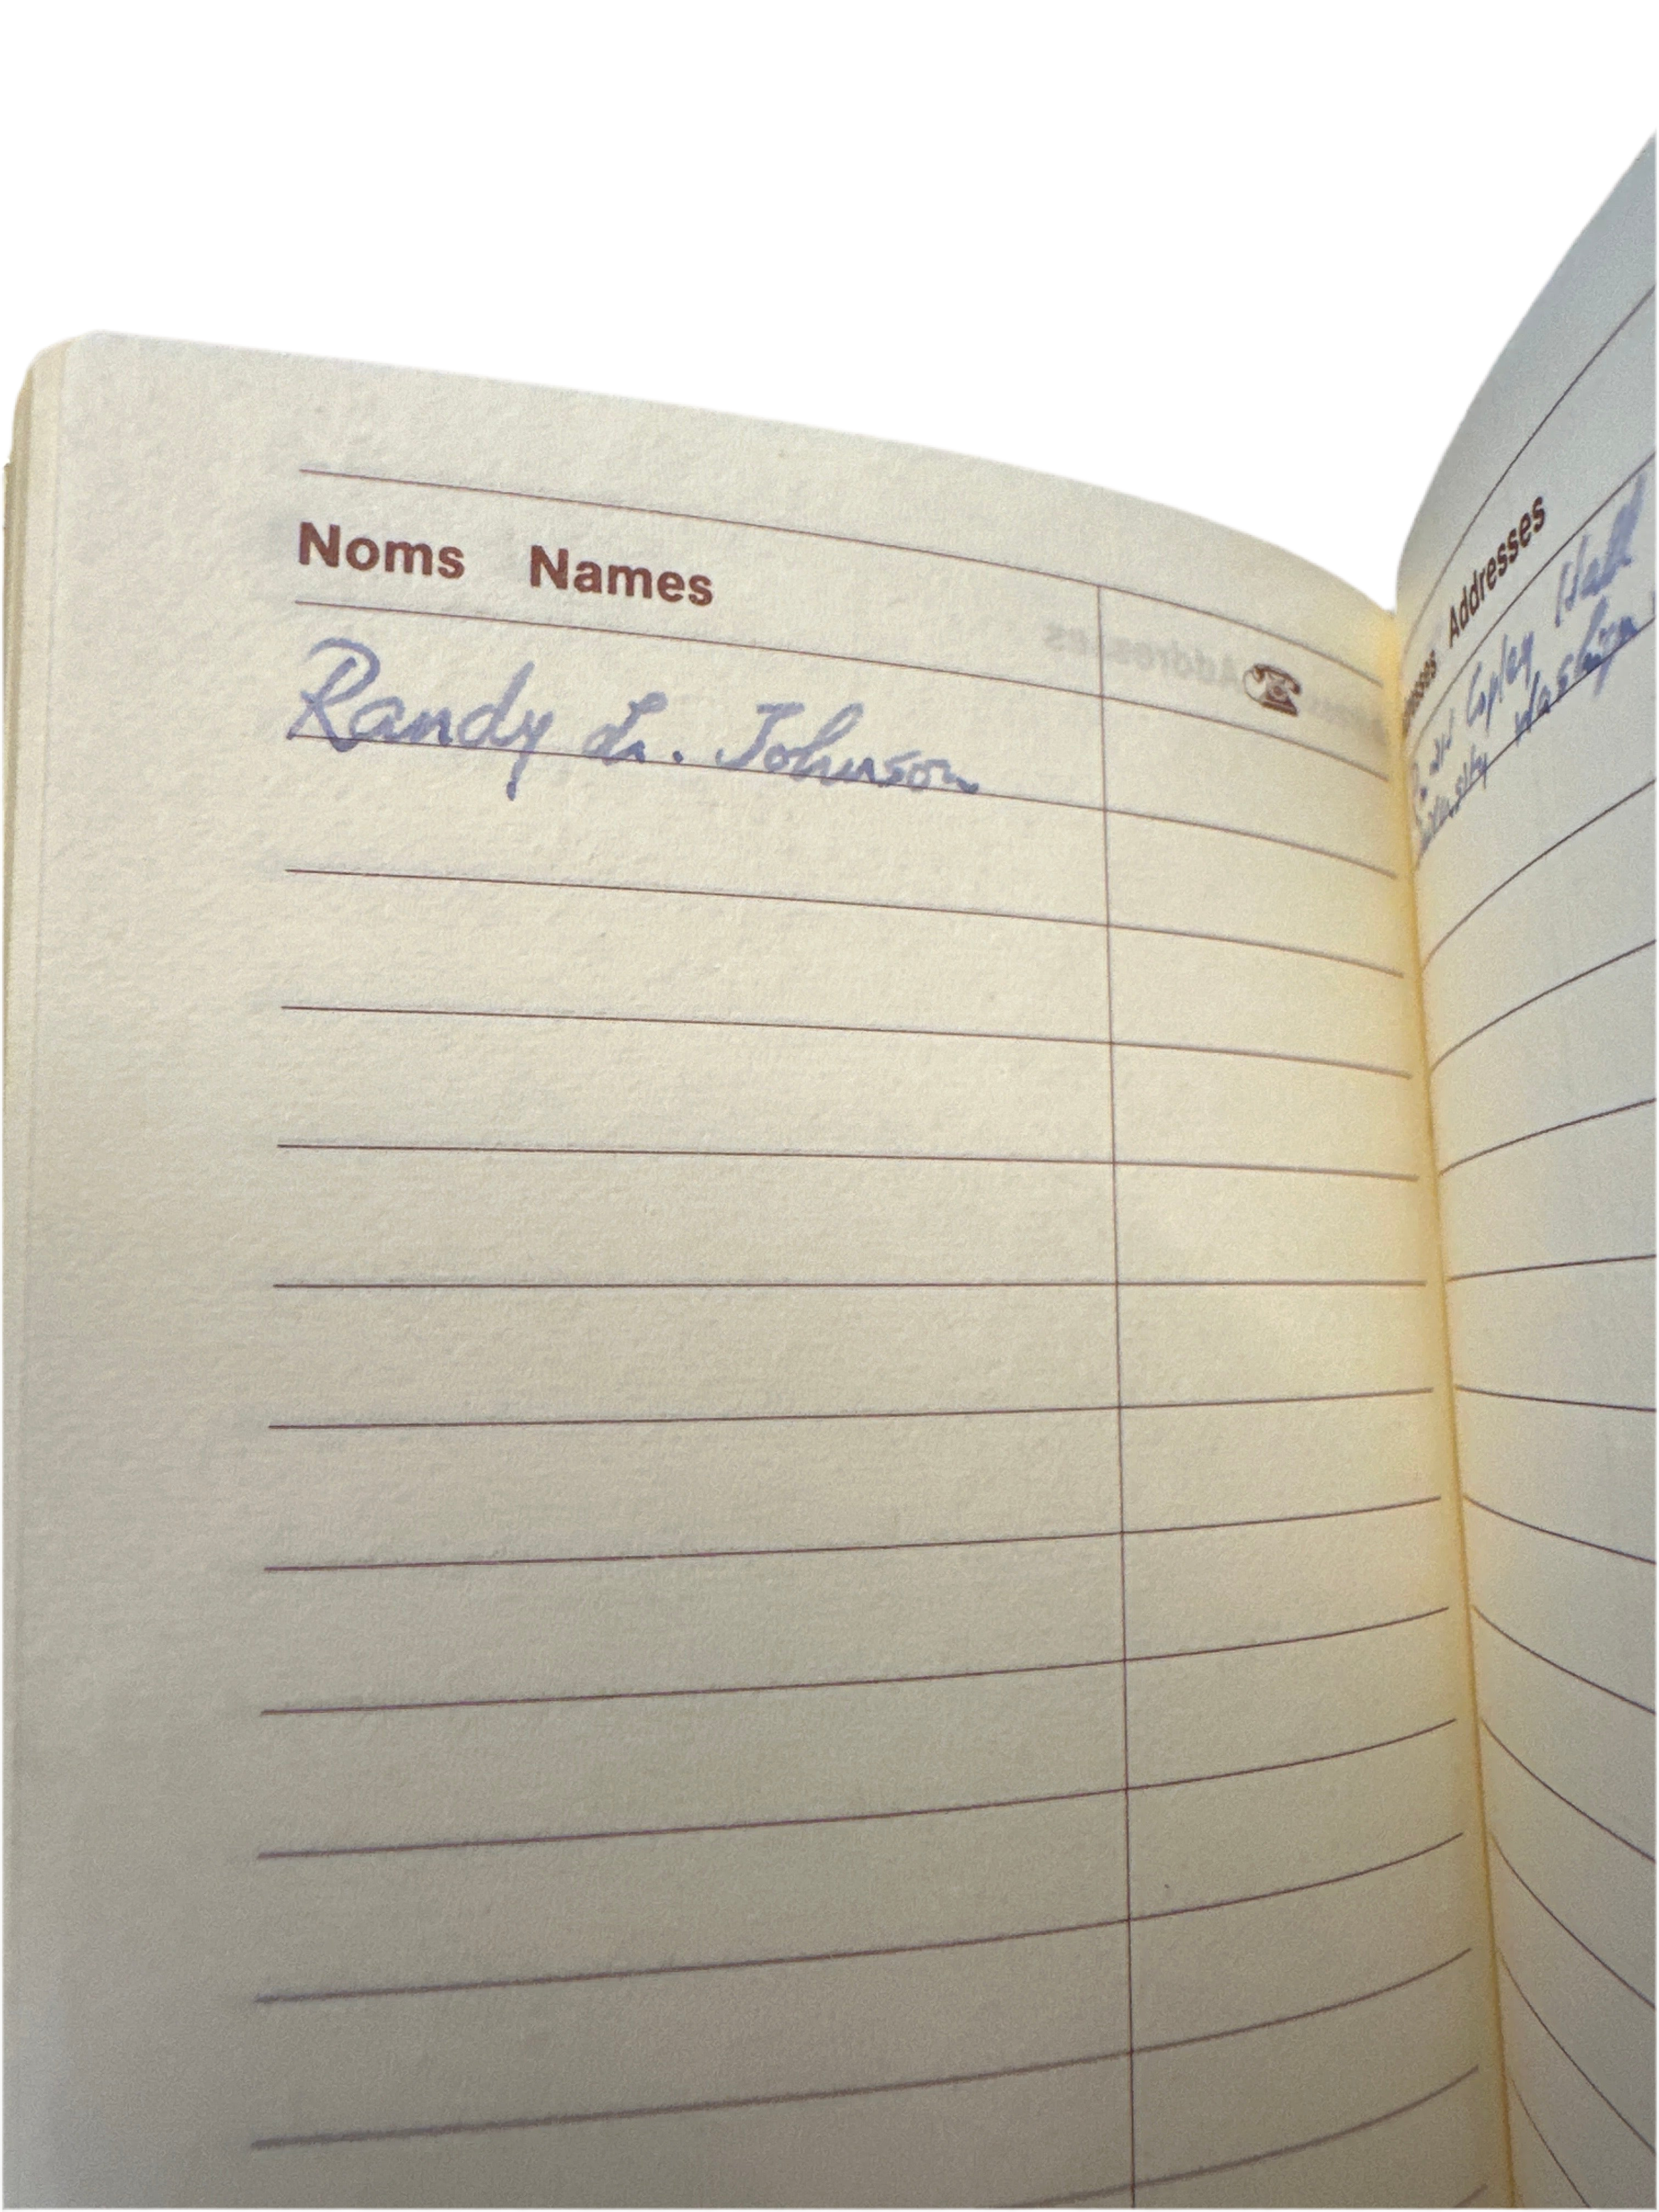 Noms Names
Randy L. Johnson
Addresses
Copley Hall